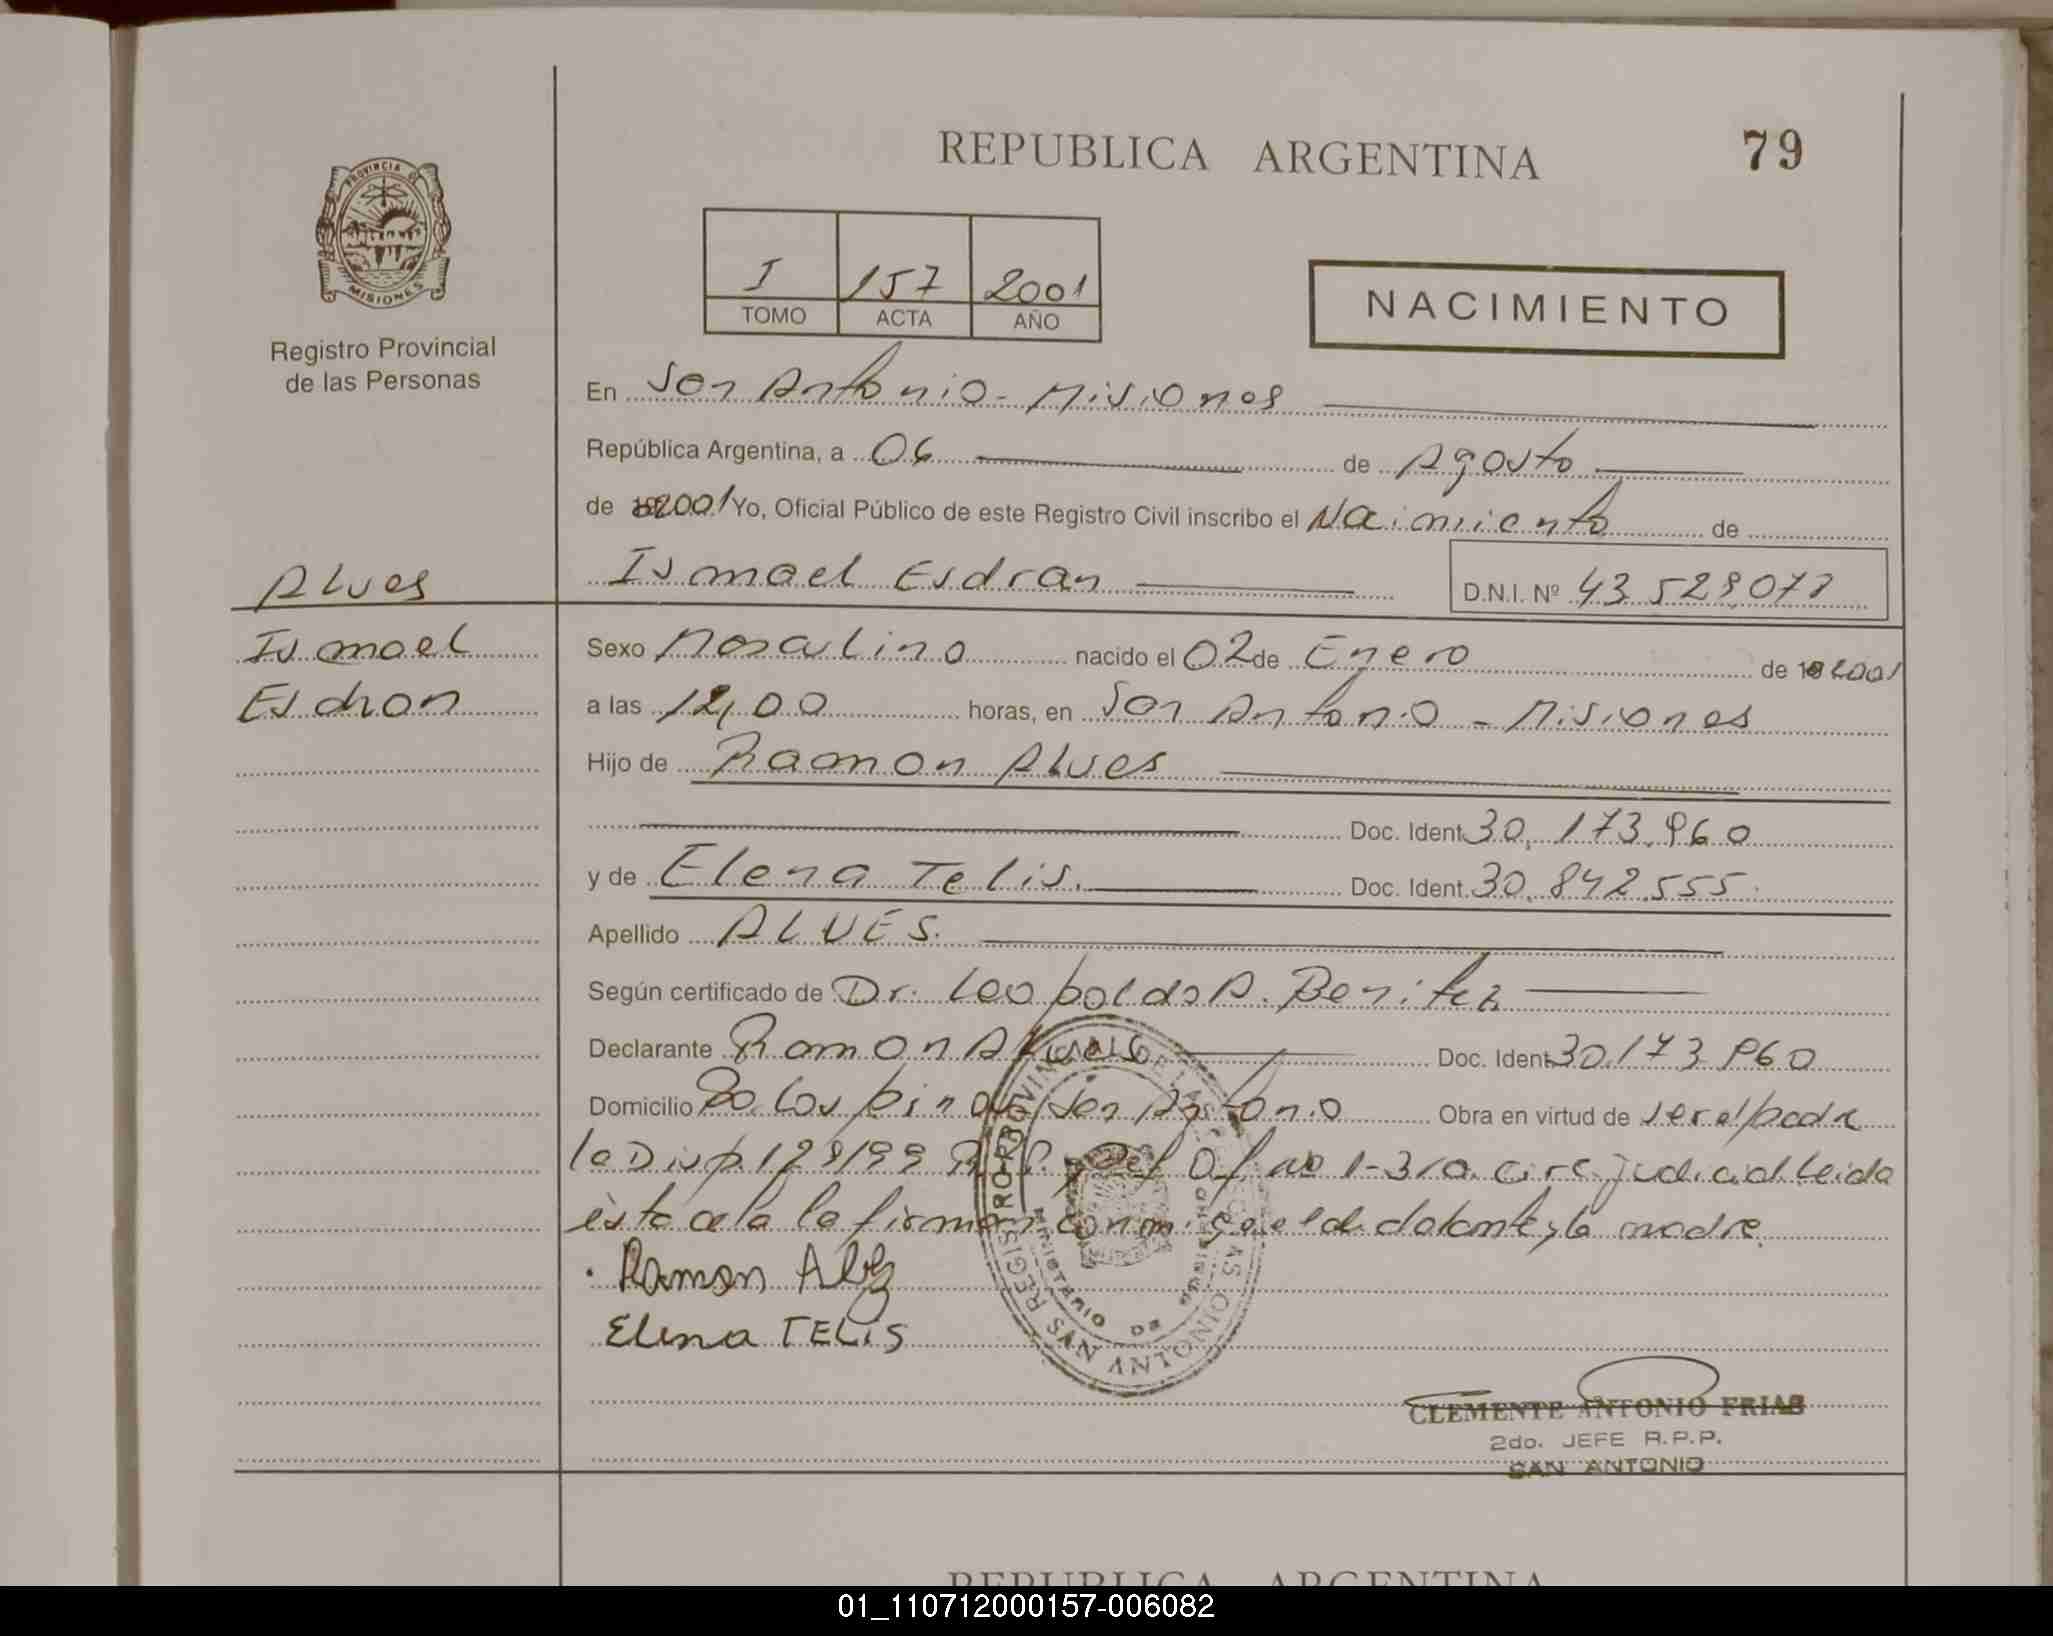 REPUBLICA ARGENTINA
79
PROVINCIA DE
MISIONES
Registro Provincial
de las Personas
I 157 2001
TOMO ACTA AÑO
NACIMIENTO
En San Antonio - Misiones
República Argentina, a 06 de Agosto
de 2001 Yo, Oficial Público de este Registro Civil inscribo el Nacimiento de
Alves
Ismael Esdran
D.N.I. Nº 43.528.078
Ismael
Sexo Masculino nacido el 02 de Enero de 2001
Esdran
a las 12,00 horas, en San Antonio - Misiones
Hijo de Ramon Alves
Doc. Ident. 30.173.960
y de Elena Telis. Doc. Ident. 30.842.555.
Apellido ALVES.
Según certificado de Dr. Leopoldo A. Benitez
Declarante Ramon Alves Doc. Ident. 30.173.960
Domicilio Los pinos San Antonio Obra en virtud de ser el padre
la Disp. 128/99 R.P.P. y Def. Of. no 1-3ra. circ. judicial. Leida
ésta acta la firman conmigo el declarante y la madre.
Ramon
Elena TELIS
REGISTRO PROVINCIAL DE LAS PERSONAS
MINISTERIO DE GOBIERNO
SAN ANTONIO
CLEMENTE ANTONIO FRIAS
2do. JEFE R.P.P.
SAN ANTONIO
REPUBLICA ARGENTINA
01_110712000157-006082